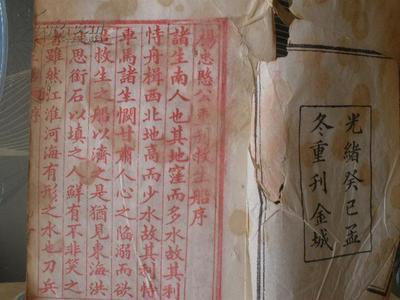 光緒癸巳孟
冬重刊 金城
楊忠愍公重刊救生船序
諸生南人也其地窪而多水故其利
恃舟楫西北地高而少水故其利恃
車馬諸生憫甘肅人心之陷溺而欲
救生之船以濟之是猶見東海洪
思銜石以填之人鮮有不非笑之
雖然江淮河海有形之水也刀兵